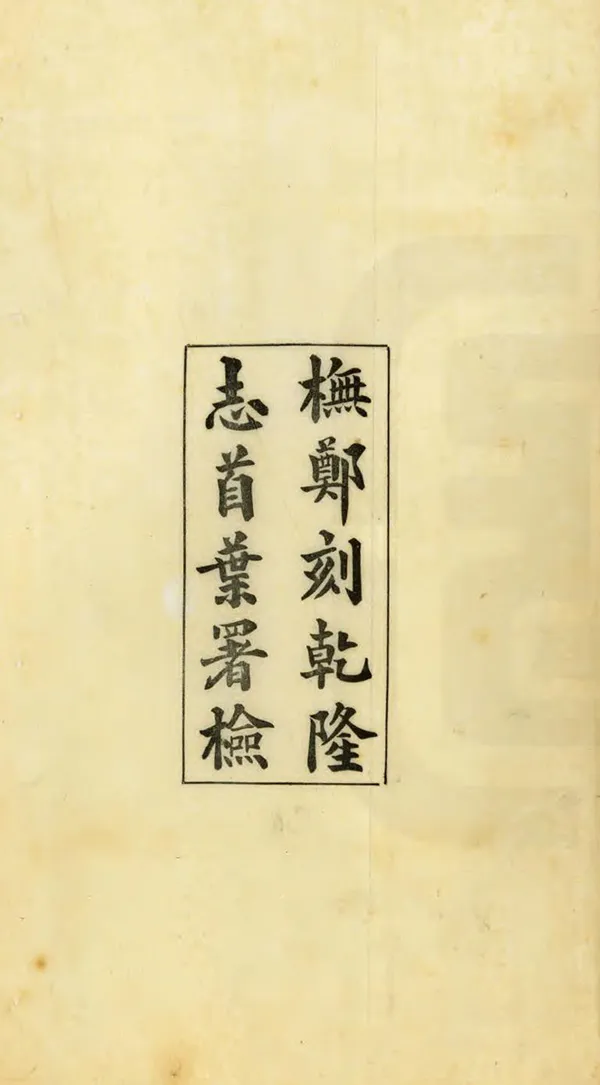 橅鄭刻乾隆
志首葉署檢